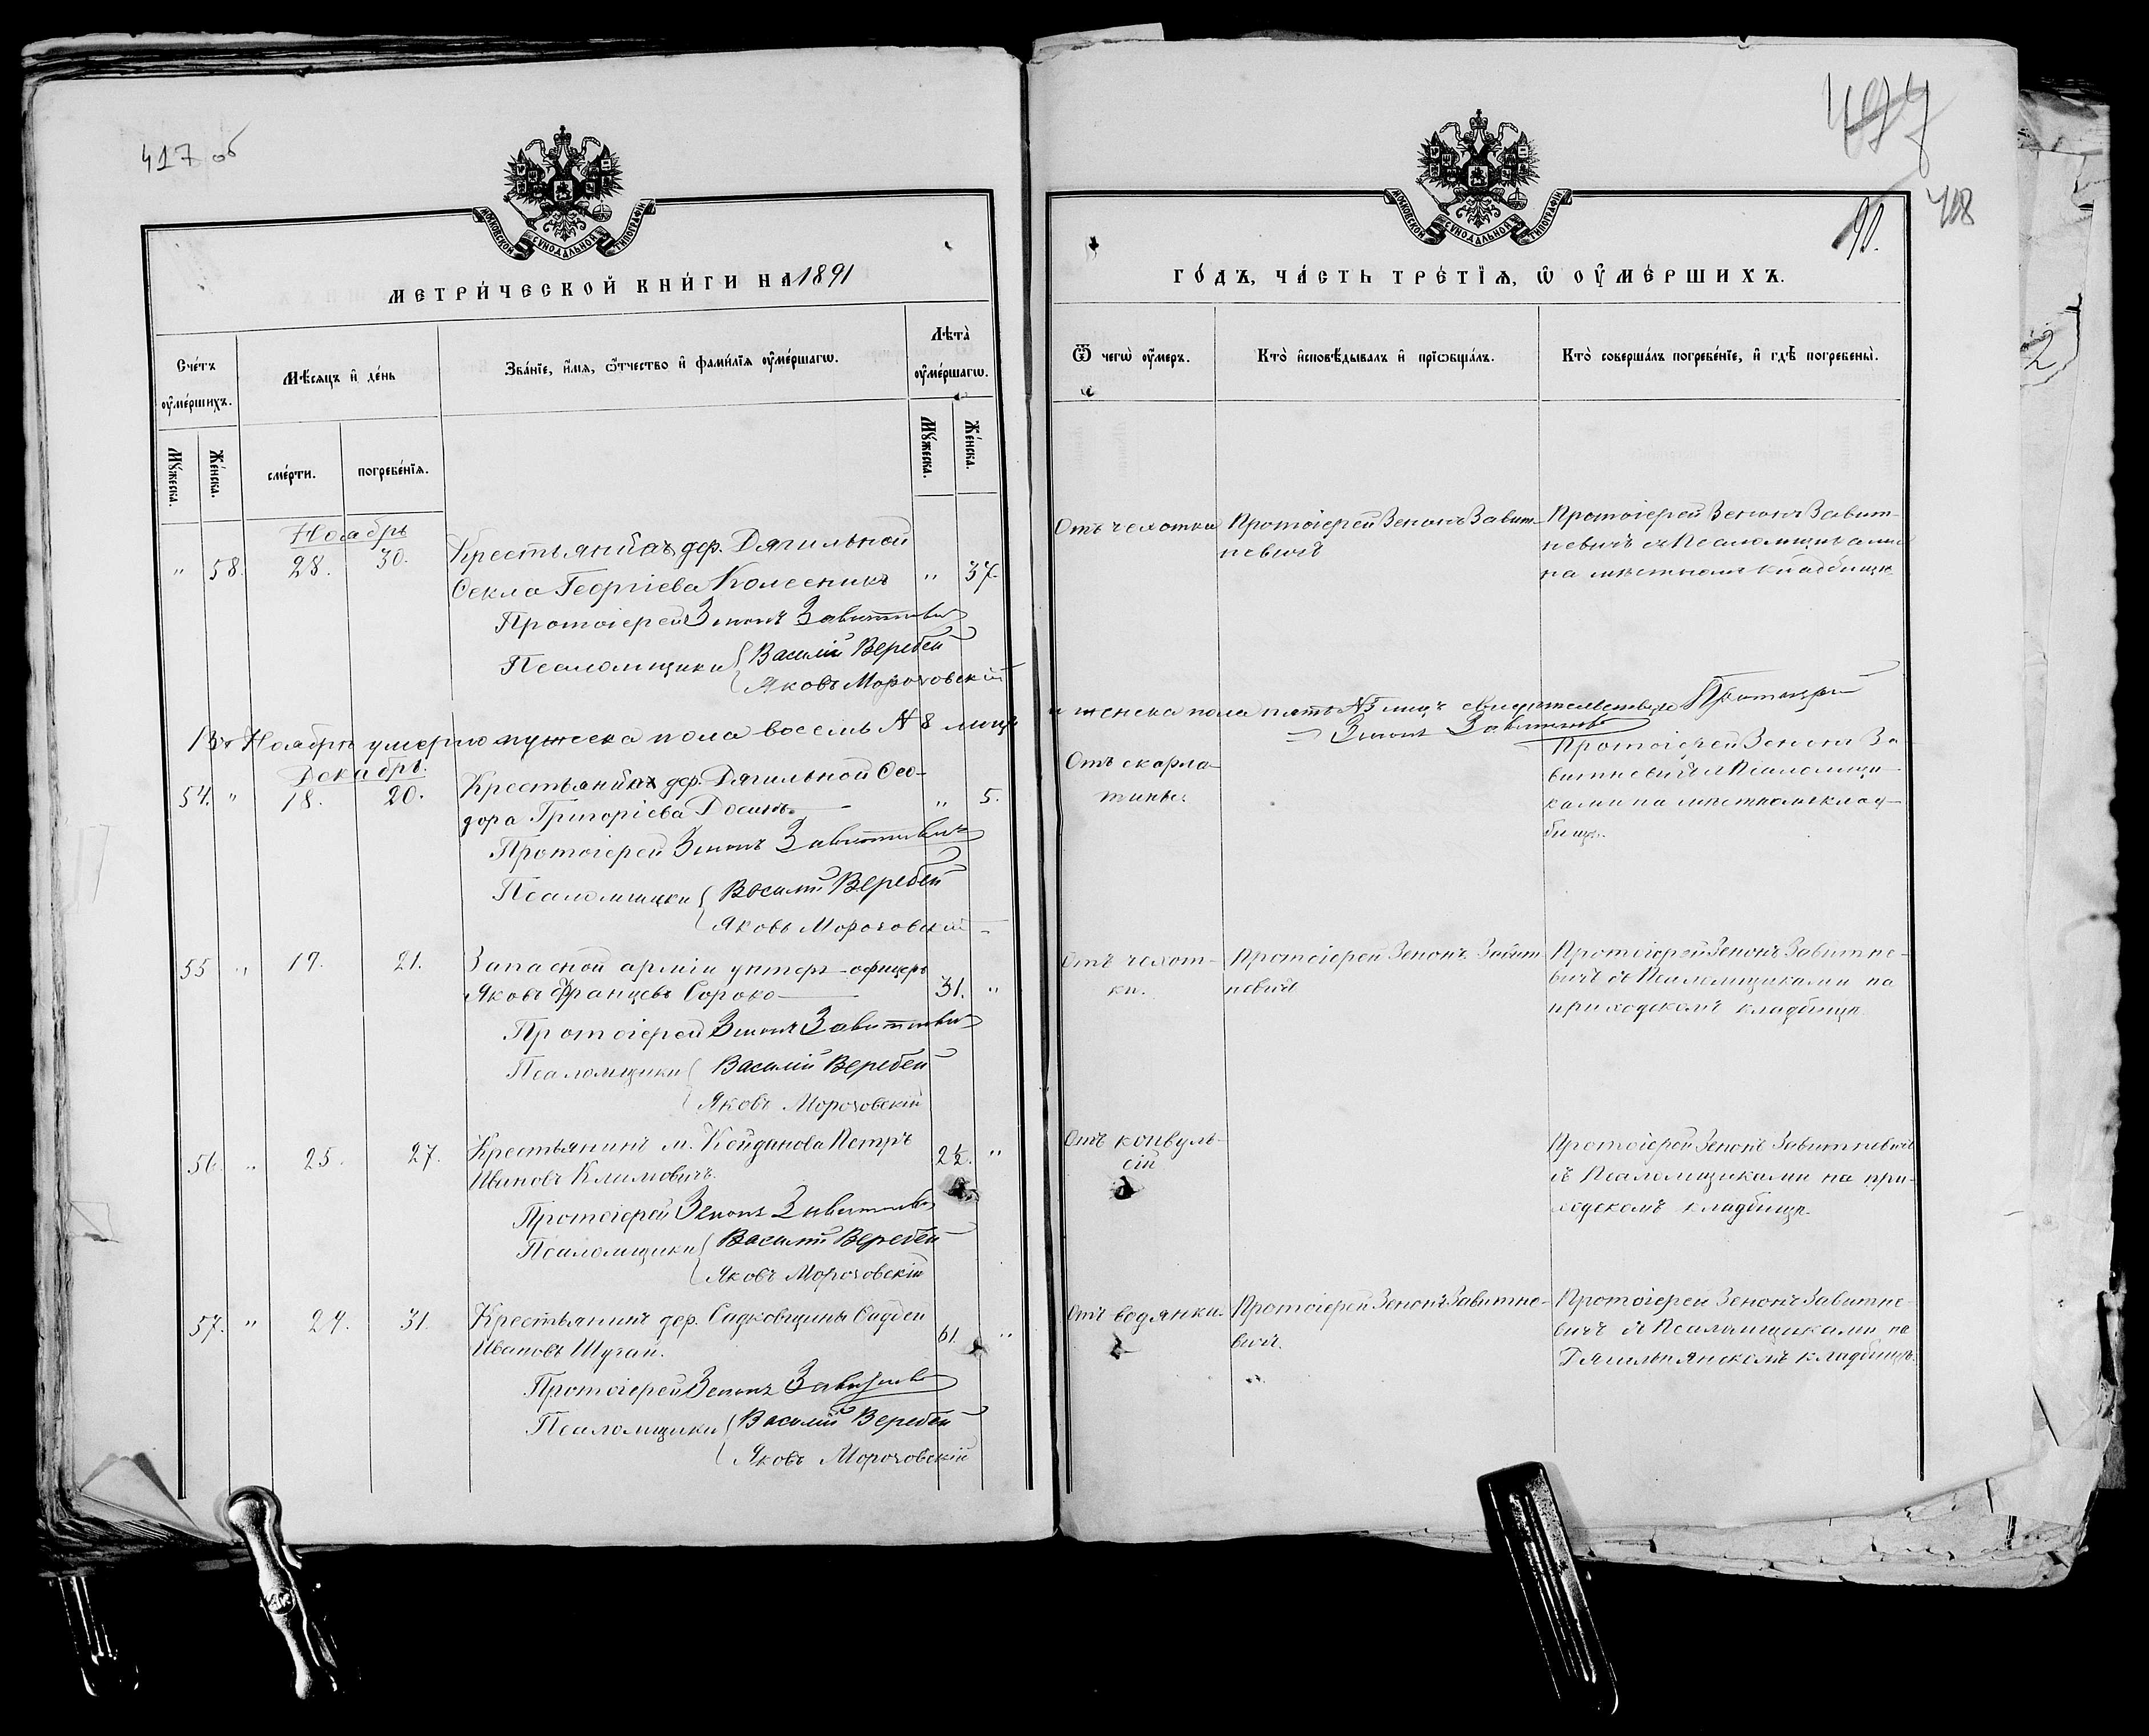 417 об
МОСКОВСКОЙ СѴНОДАЛЬНОЙ ТИПОГРАФІИ
МЕТРИ́ЧЕСКОЙ КНИ́ГИ НА 1891
Сче́тъ оу҆ме́ршихъ.
Мѣ́сяцъ и҆ де́нь
Зва́нїе, и҆́мѧ, ѻ҆́тчество и҆ фами́лїѧ оу҆ме́ршагѡ.
Лѣта̀ оу҆ме́ршагѡ.
Мꙋ́жеска.
Же́нска.
сме́рти.
погребе́нїѧ.
Мꙋ́жеска.
Же́нска.
Ноябрь
" 58. 28. 30. Крестьянка дер. Дягильной
Ѳекла Георгіева Колесникъ " 37.
Протоіерей Зенонъ Завитневичъ
Псаломщики { Василій Веребей
Яковъ Морочовскій
Въ Ноябрѣ умерло мужеска пола восемь № 8 лицъ
Декабрь.
54. " 18. 20. Крестьянка дер. Дягильной Ѳео-
дора Григоріева " 5.
Протоіерей Зенонъ Завитневичъ
Псаломщики { Василій Веребей
Яковъ Морочовскій
55 " 19. 21. Запасной арміи унтеръ-офицеръ
Яковъ Францевъ Сороко 31. "
Протоіерей Зенонъ Завитневичъ
Псаломщики { Василій Веребей
Яковъ Морочовскій
56. " 25. 27. Крестьянинъ м. Койданова Петръ
Ивановъ Климовичъ. 2½. "
Протоіерей Зенонъ Завитневичъ
Псаломщики { Василій Веребей
Яковъ Морочовскій
57. " 29. 31. Крестьянинъ дер. Садковщины Ѳаддей
Ивановъ Шугай. 61. "
Протоіерей Зенонъ Завитневичъ
Псаломщики { Василій Веребей
Яковъ Морочовскій
90.
418
МОСКОВСКОЙ СѴНОДАЛЬНОЙ ТИПОГРАФІИ
ГО́ДЪ, ЧА́СТЬ ТРЕ́ТЇѦ, Ѡ҆ ОУ҆МЕ́РШИХЪ.
Ѿ чегѡ̀ оу҆́мер.
Кто̀ и҆сповѣ́дывалъ и҆ прїѡбща́лъ.
Кто̀ соверша́лъ погребе́нїе, и҆ гдѣ̀ погребены̀.
2
Отъ чахотки Протоіерей Зенонъ Завит- Протоіерей Зенонъ Завит-
невичъ невичъ съ Псаломщиками
на мѣстномъ кладбищѣ
и женска пола пять № 5 лицъ свидѣтельствую Протоіерей
Зенонъ Завитневичъ
Отъ скарла- Протоіерей Зенонъ За-
тины. витневичъ съ Псаломщи-
ками на мѣстномъ клад-
бищѣ.
Отъ чахот- Протоіерей Зенонъ Завит- Протоіерей Зенонъ Завитне-
ки. невичъ вичъ съ Псаломщиками на
приходскомъ кладбищѣ.
Отъ конвуль- Протоіерей Зенонъ Завитневичъ
сій съ Псаломщиками на при-
ходскомъ кладбищѣ.
Отъ водянки. Протоіерей Зенонъ Завитне- Протоіерей Зенонъ Завитне-
вичъ. вичъ съ Псаломщиками на
Дягильнянскомъ кладбищѣ.